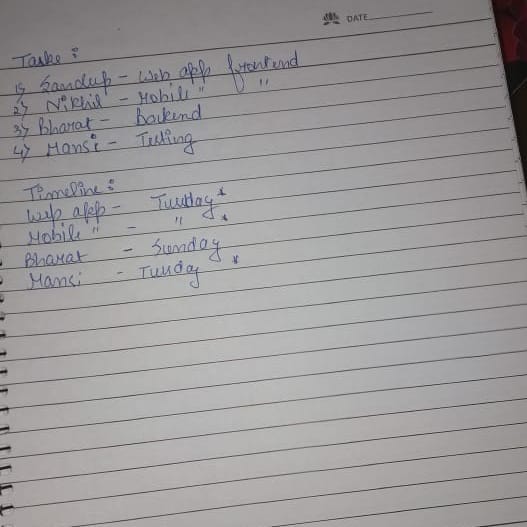 DATE
Tasks :
1) Sandeep - Web app frontend
2) Nikhil - Mobile " "
3) Bharat - Backend
4) Mansi - Testing
Timeline :
Web app - Tuesday *
Mobile " - " *
Bharat - Sunday
Mansi - Tuesday *